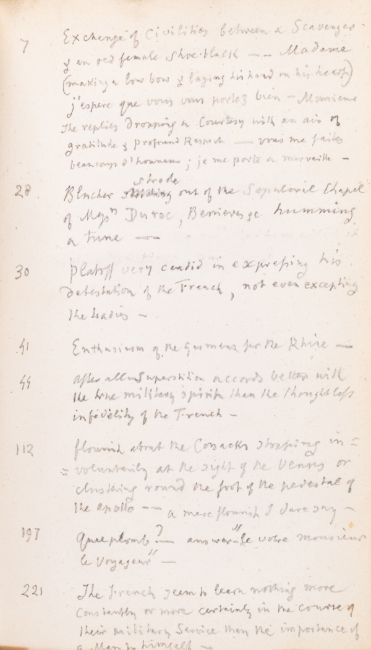 7 Exchange of Civilities between a Scavenger
& an old female Shoe-black -- Madame
(making a low bow & laying his hand on his heart)
j'espere que vous vous portez bien - Monsieur
The replies dropping a Courtesy with an air of
gratitude & profound Respect - vous me faites
beaucoup d'honneur; je me porte a merveille -
28 Blucher strode out of the Sepulcral Chapel
of Duroc, humming
a tune -
30 Platoff very candid in expressing his
detestation of the French, not even excepting
the Ladies -
41 Enthusiasm of the Germans for the Rhine -
44 after all Superstition accords better with
the true military spirit than the thoughtless
infidelity of the French -
112 flourish about the Cossacks stopping in=
=voluntarily at the sight of the Venus or
clustring round the foot of the pedestal of
the apollo -- a mere flourish I dare say -
197 answer "le votre monsieur
le Voyageur" -
221 The French seem to learn nothing more
Constantly or more certainly in the course of
their military Service than the importance of
a Man to himself -